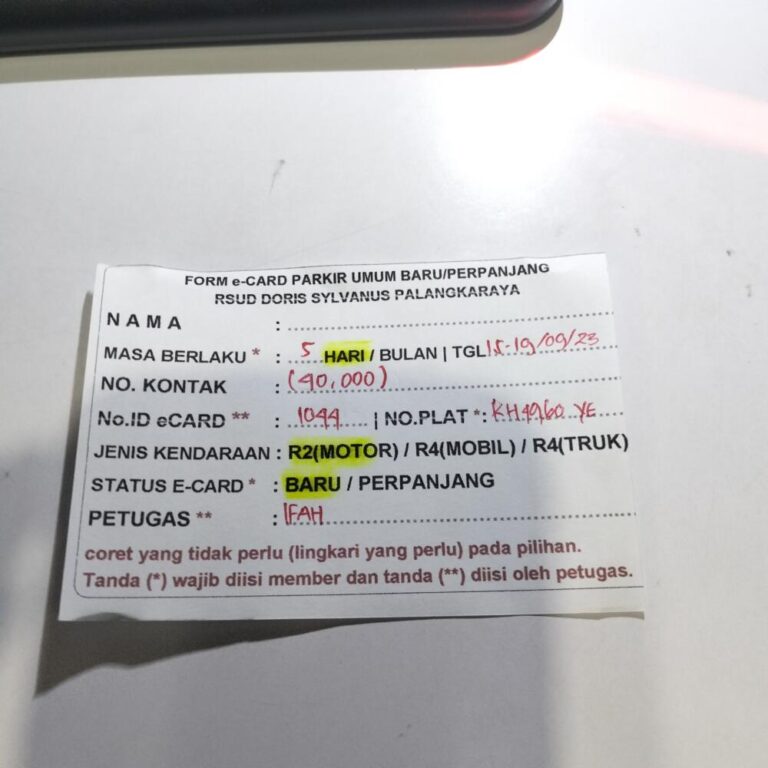 FORM e-CARD PARKIR UMUM BARU/PERPANJANG
RSUD DORIS SYLVANUS PALANGKARAYA
NAMA :
MASA BERLAKU * : 5 HARI / BULAN | TGL 15-19/09/23
NO. KONTAK : (40.000)
No.ID eCARD ** : 1044 | NO.PLAT *: KH 4960 YE
JENIS KENDARAAN : R2(MOTOR) / R4(MOBIL) / R4(TRUK)
STATUS E-CARD * : BARU / PERPANJANG
PETUGAS ** : IFAH
coret yang tidak perlu (lingkari yang perlu) pada pilihan.
Tanda (*) wajib diisi member dan tanda (**) diisi oleh petugas.